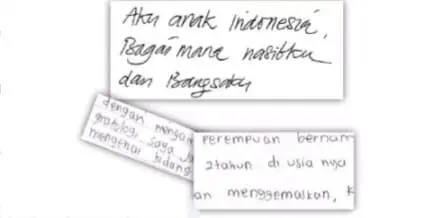 Aku anak Indonesia,
Bagai mana nasibku
dan Bangsaku
dengan
grafologi, saya
mengenai bidang
perempuan bernam
2tahun di usia nya
an menggemaskan, k